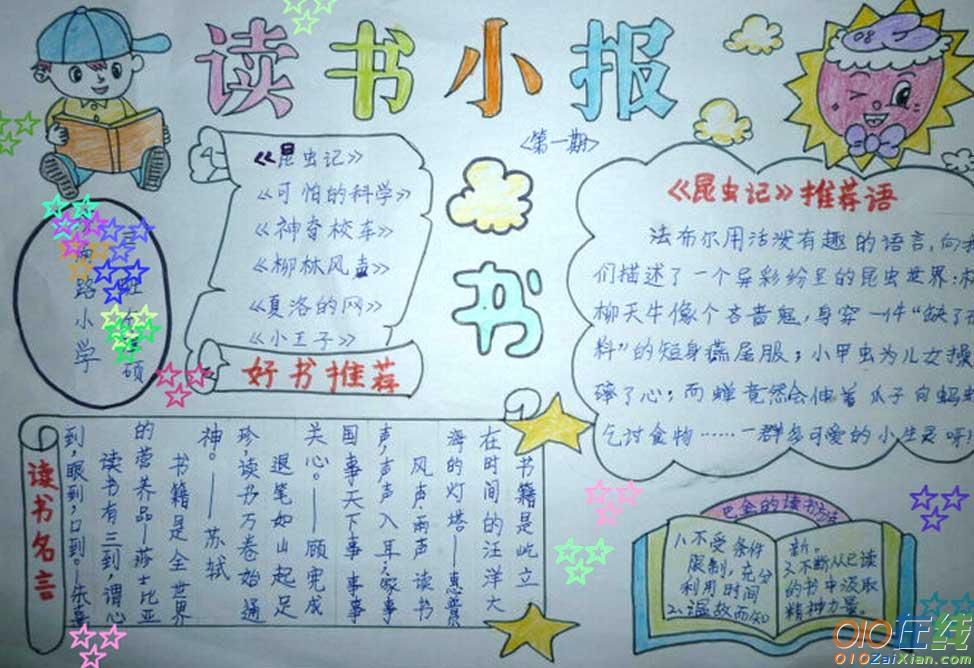 读书小报
<第一期>
《昆虫记》
《可怕的科学》
《神奇校车》
《柳林风声》
《夏洛的网》
《小王子》
好书推荐
路小学
硕
书
《昆虫记》推荐语
法布尔用活泼有趣的语言,向我
们描述了一个异彩纷呈的昆虫世界:
柳天牛像个吝啬鬼,身穿一件“缺了布
料”的短身燕尾服;小甲虫为儿女操
碎了心;而蝉竟然会伸着爪子向蚂蚁
乞讨食物……一群多可爱的小生灵呀
读书名言
书籍是屹立
在时间的汪洋大
海的灯塔。——惠普
风声雨声读书
声,声声入耳;家事
国事天下事,事事
关心。——顾宪成
退笔如山起足
珍,读书万卷始通
神。——苏轼
书籍是全世界
的营养品—莎士比亚
读书有三到,谓心
到,眼到,口到。—朱熹
巴金的读书方法
1.不受条件
限制,充分
利用时间
2.温故而知
新。
3.不断从已读
的书中汲取
精神力量。
010在线
010ZaiXian.com